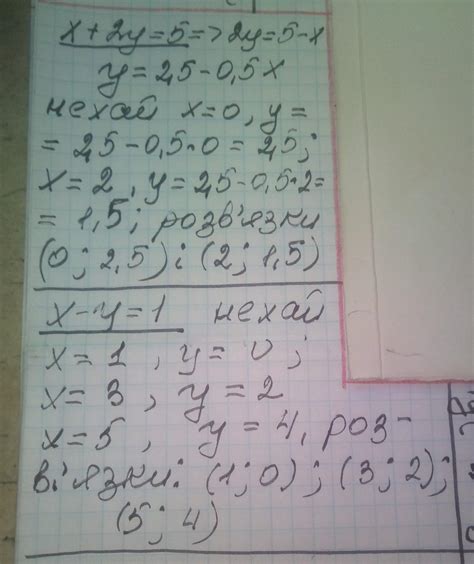 x+2y=5=>2y=5-x
y=2,5-0,5x
нехай x=0, y=
=2,5-0,5·0=2,5;
x=2, y=2,5-0,5·2=
=1,5; розв'язки
(0; 2,5) і (2; 1,5)
x-y=1 нехай
x=1, y=0;
x=3, y=2
x=5, y=4, роз-
в'язки: (1;0); (3;2);
(5; 4)